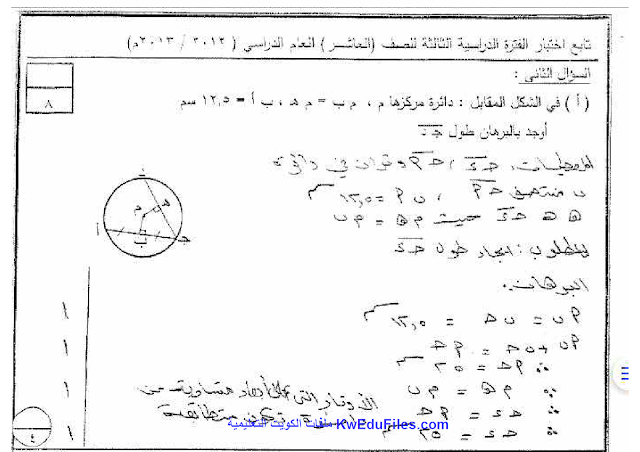 تابع اختبار الفترة الدراسية الثالثة للصف (العاشر) العام الدراسي (٢٠١٢ / ٢٠١٣م)
السؤال الثاني :
٨
( أ ) في الشكل المقابل : دائرة مركزها م ، م ب = م هـ ، ب أ = ١٢,٥ سم
أوجد بالبرهان طول جـ د
المعطيات: حـ د ، حـ م وتران في دائرة
ب منتصف حـ م ، م ب = ١٢,٥ سم
هـ حـ د حيث م هـ = م ب
د
م
هـ
أ
ب
جـ
المطلوب : ايجاد طول حـ د
البرهان:
م ب = ب حـ = ١٢,٥ سم
١
م ب + ب حـ = م حـ
١
∴ م حـ = ٢٥ سم
∵ م هـ = م ب
الأوتار التي على أبعاد متساوية من
١
∴ حـ د = م حـ
تكون متطابقة
∴ حـ د = ٢٥ سم
١
٤
KwEduFiles.com ملفات الكويت التعليمية